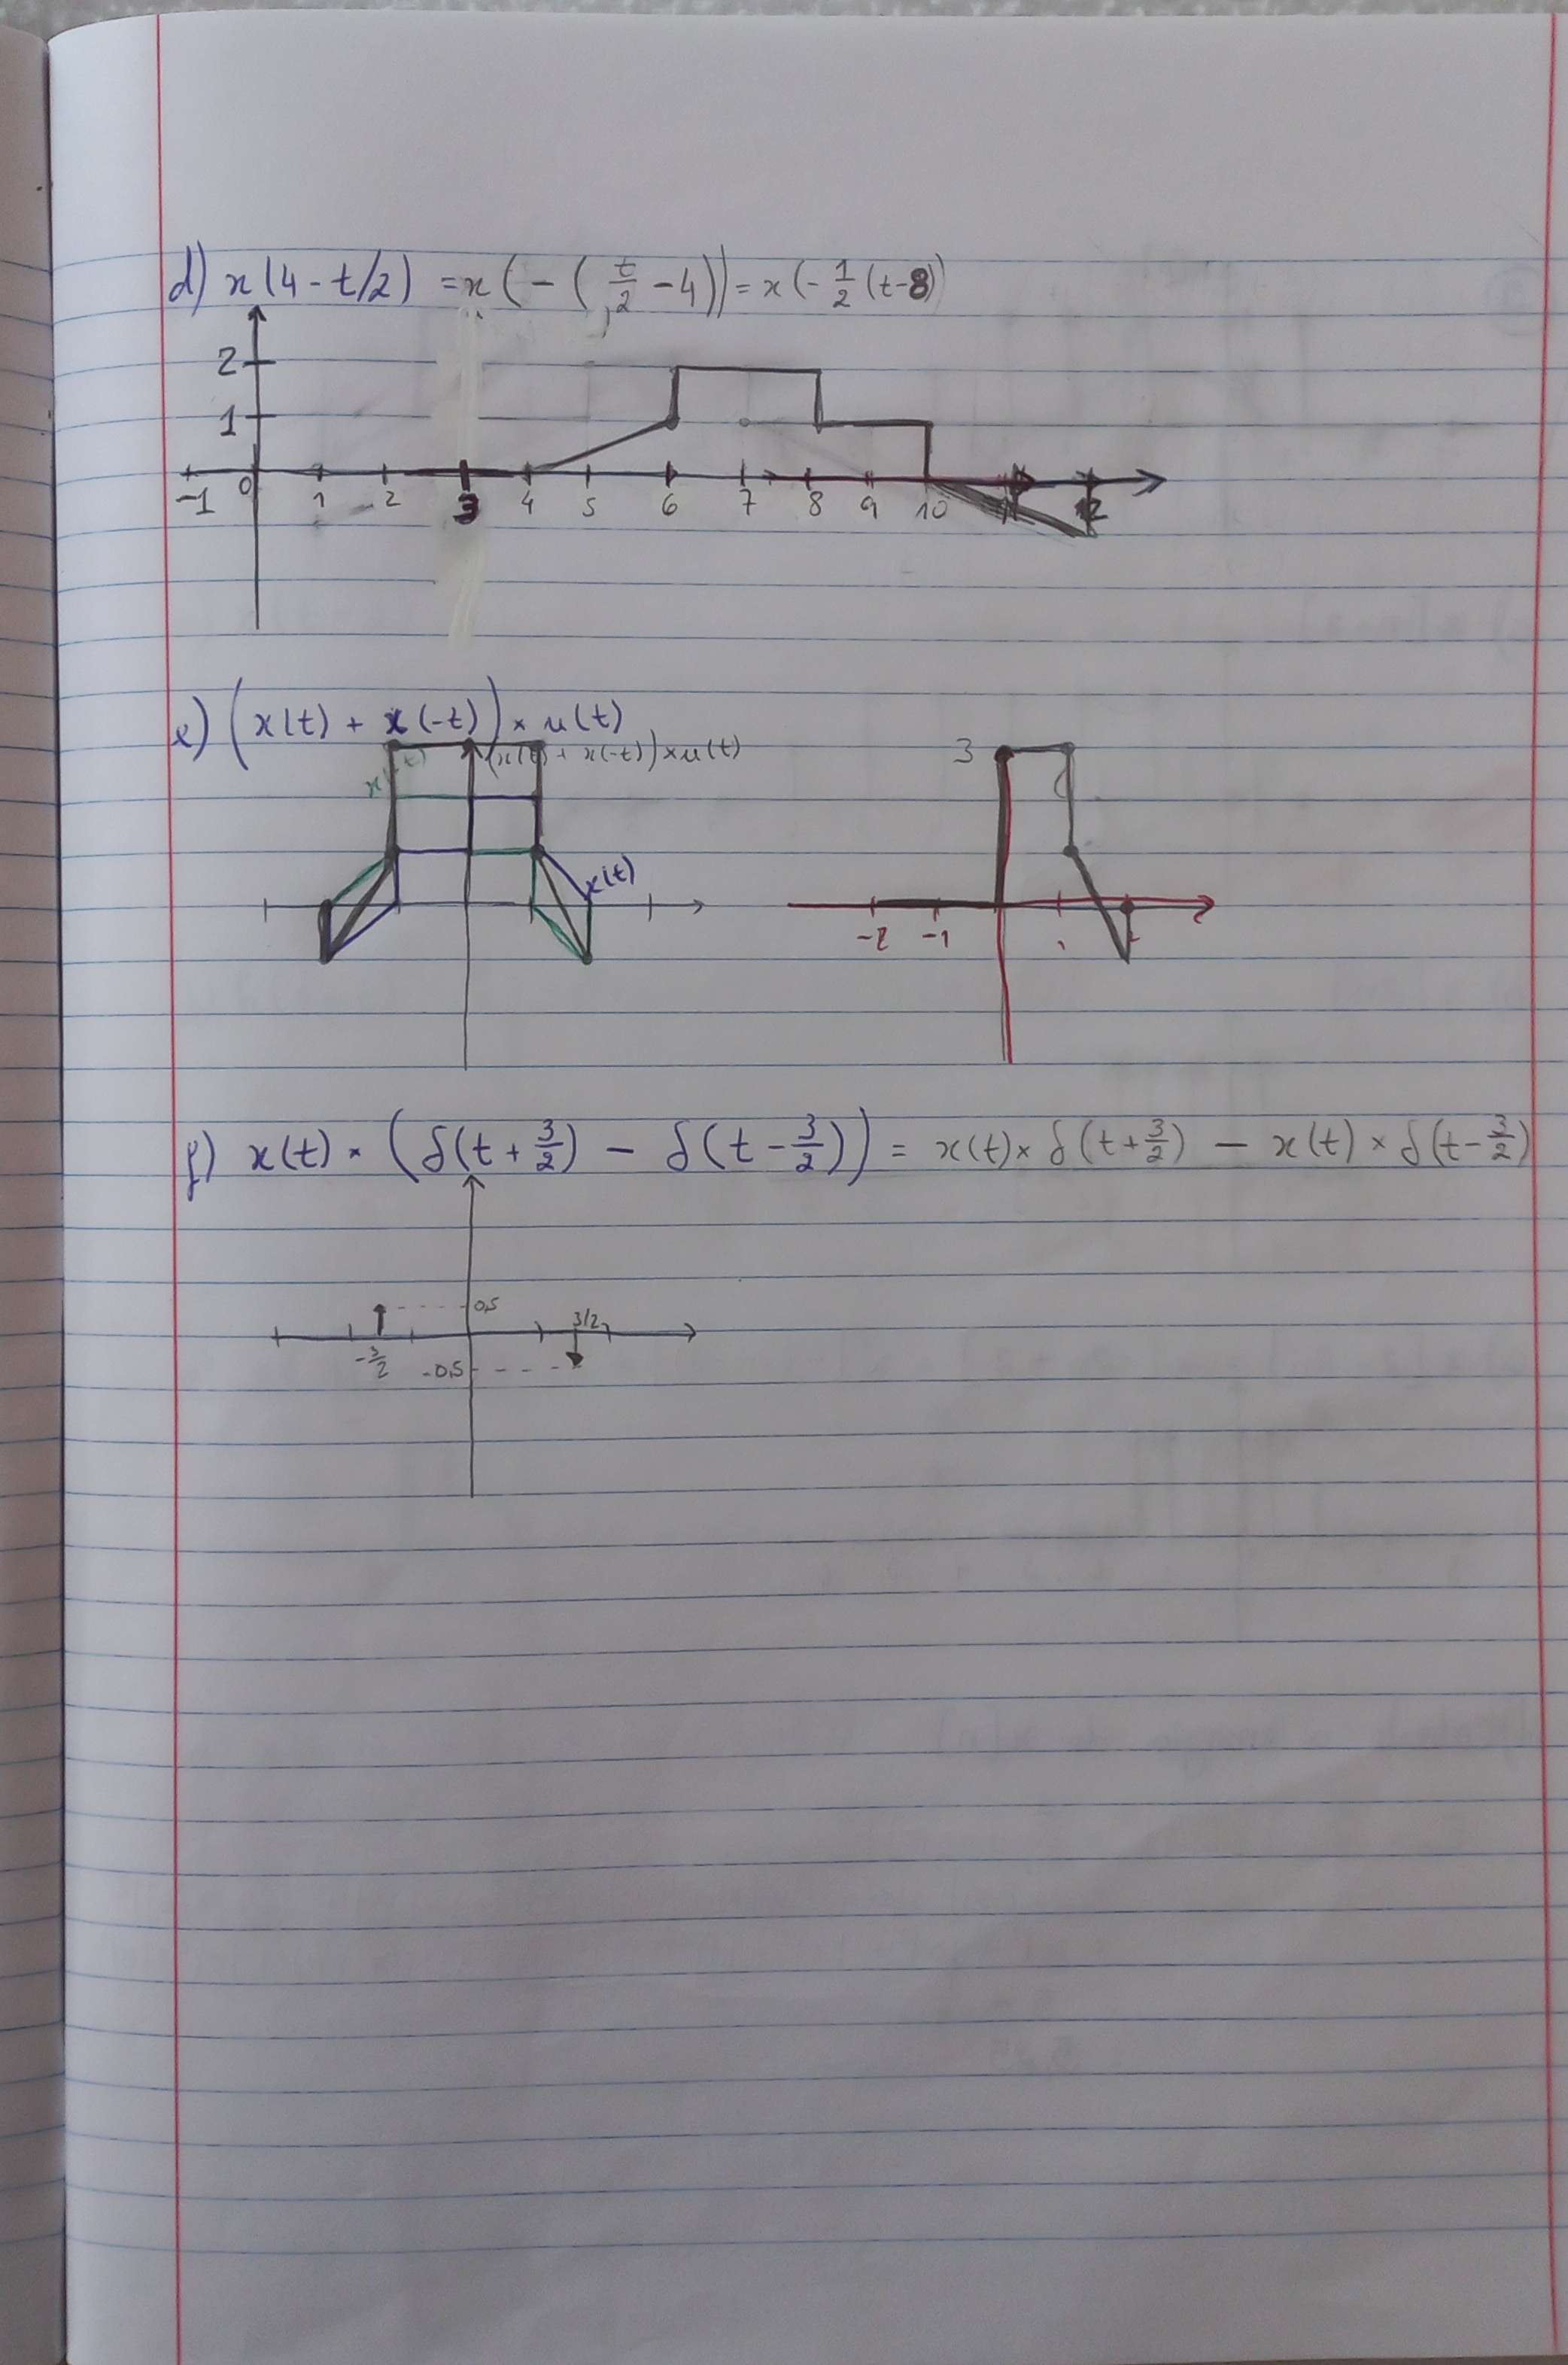 d) x(4-t/2) = x(-(t/2 -4)) = x(-1/2 (t-8)
2
1
-1 0 1 2 3 4 5 6 7 8 9 10 11 12
e) (x(t) + x(-t)) × u(t)
x(-t) (x(t) + x(-t)) × u(t) 3
x(t)
-2 -1
f) x(t) × (δ(t+3/2) - δ(t-3/2)) = x(t) × δ(t+3/2) - x(t) × δ(t-3/2)
0,5
3/2
-3/2 -0,5